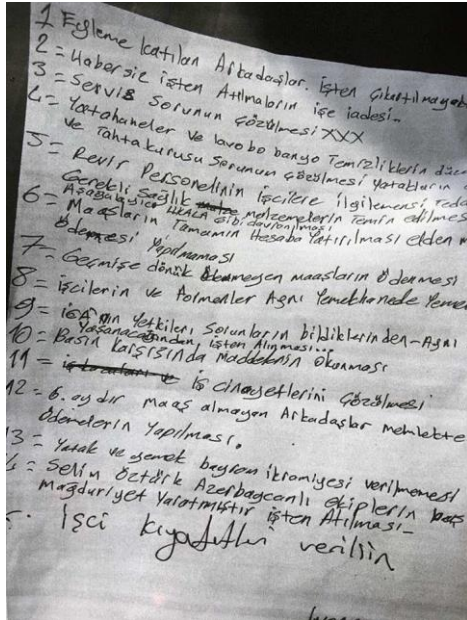 1 Eyleme katılan Arkadaşlar. İşten Çıkartılmayac
2 = Habersiz işten Atılmaların işe iadesi..
3 = Servis Sorunun çözülmesi XXX
4 = Yatahaneler ve lavobo banyo Temizliklerin düze
ve Tahtakurusu Sorunun çözülmesi yatakların
5 = Revir Personelinin işcilere ilgilenmesi Teda
Gerekli Sağlık malzemelerin Temin edilmes
6 = Maaşların Tamamın Hesaba Yatırılması elden
ödemesi yapılmaması
7 = Geçmişe dönük ödenmeyen maaşların ödenmesi
8 = işcilerin ve formenler Aynı Yemekhanede Yeme
9 = yetkileri Sorunların bildiklerinden-Aynı
Yaşanacağından, işten Alınması...
10 = Basın karşısında maddelerin Okunması
11 = iş cinayetlerini çözülmesi
12 = 6. aydır maaş almayan Arkadaşlar memlekte
ödemelerin Yapılması.
13 = Yatak ve yemek bayram ikromiyesi verilmemesi
= Selim Öztürk Azerbaycanlı ekiplerin
Mağduriyet Yaratmıştır işten Atılması-
işci kıyafetleri verilsin